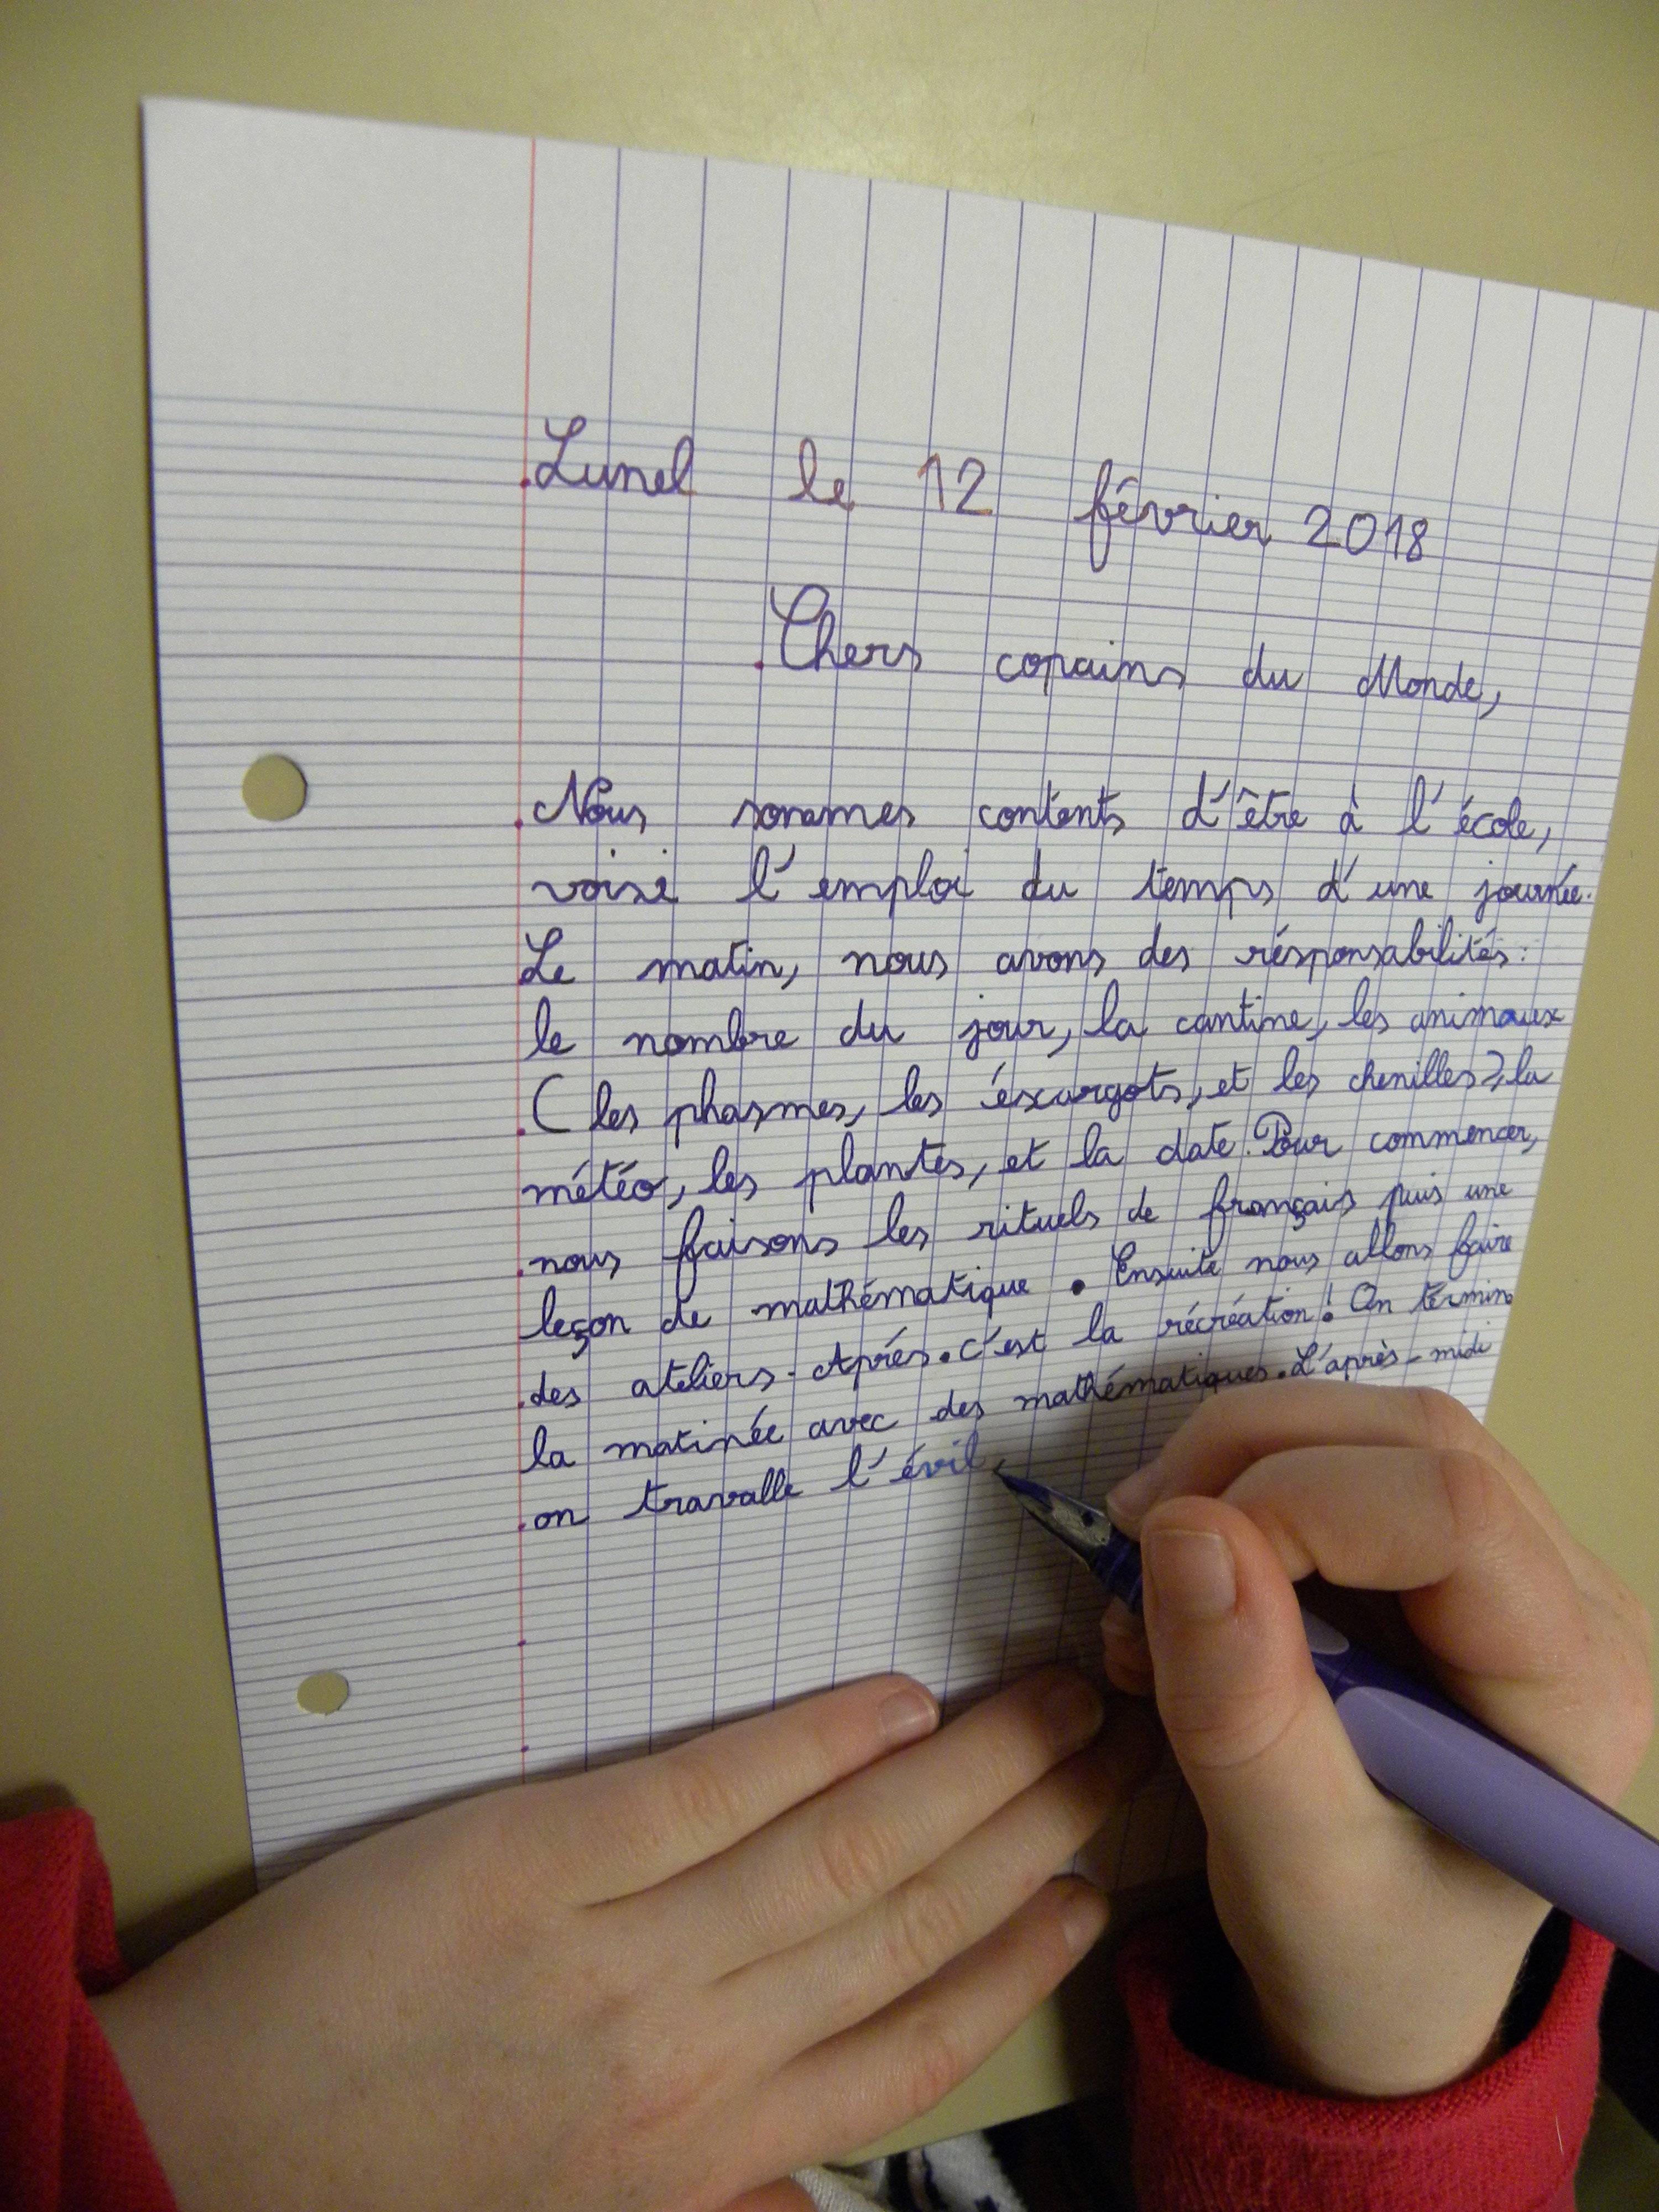 Lunel le 12 février 2018
Chers copains du Monde,
Nous sommes contents d'être à l'école,
voisi l'emploi du temps d'une journée.
Le matin, nous avons des résponsabilités:
le nombre du jour, la cantine, les animaux
( les phasmes, les éscargots, et les chenilles), la
météo, les plantes, et la date. Pour commencer,
nous faisons les rituels de français puis une
leçon de mathématique. Ensuite nous allons faire
des ateliers. Après. c'est la récréation! On términe
la matinée avec des mathématiques. L'après-midi
on travalle l'évil,